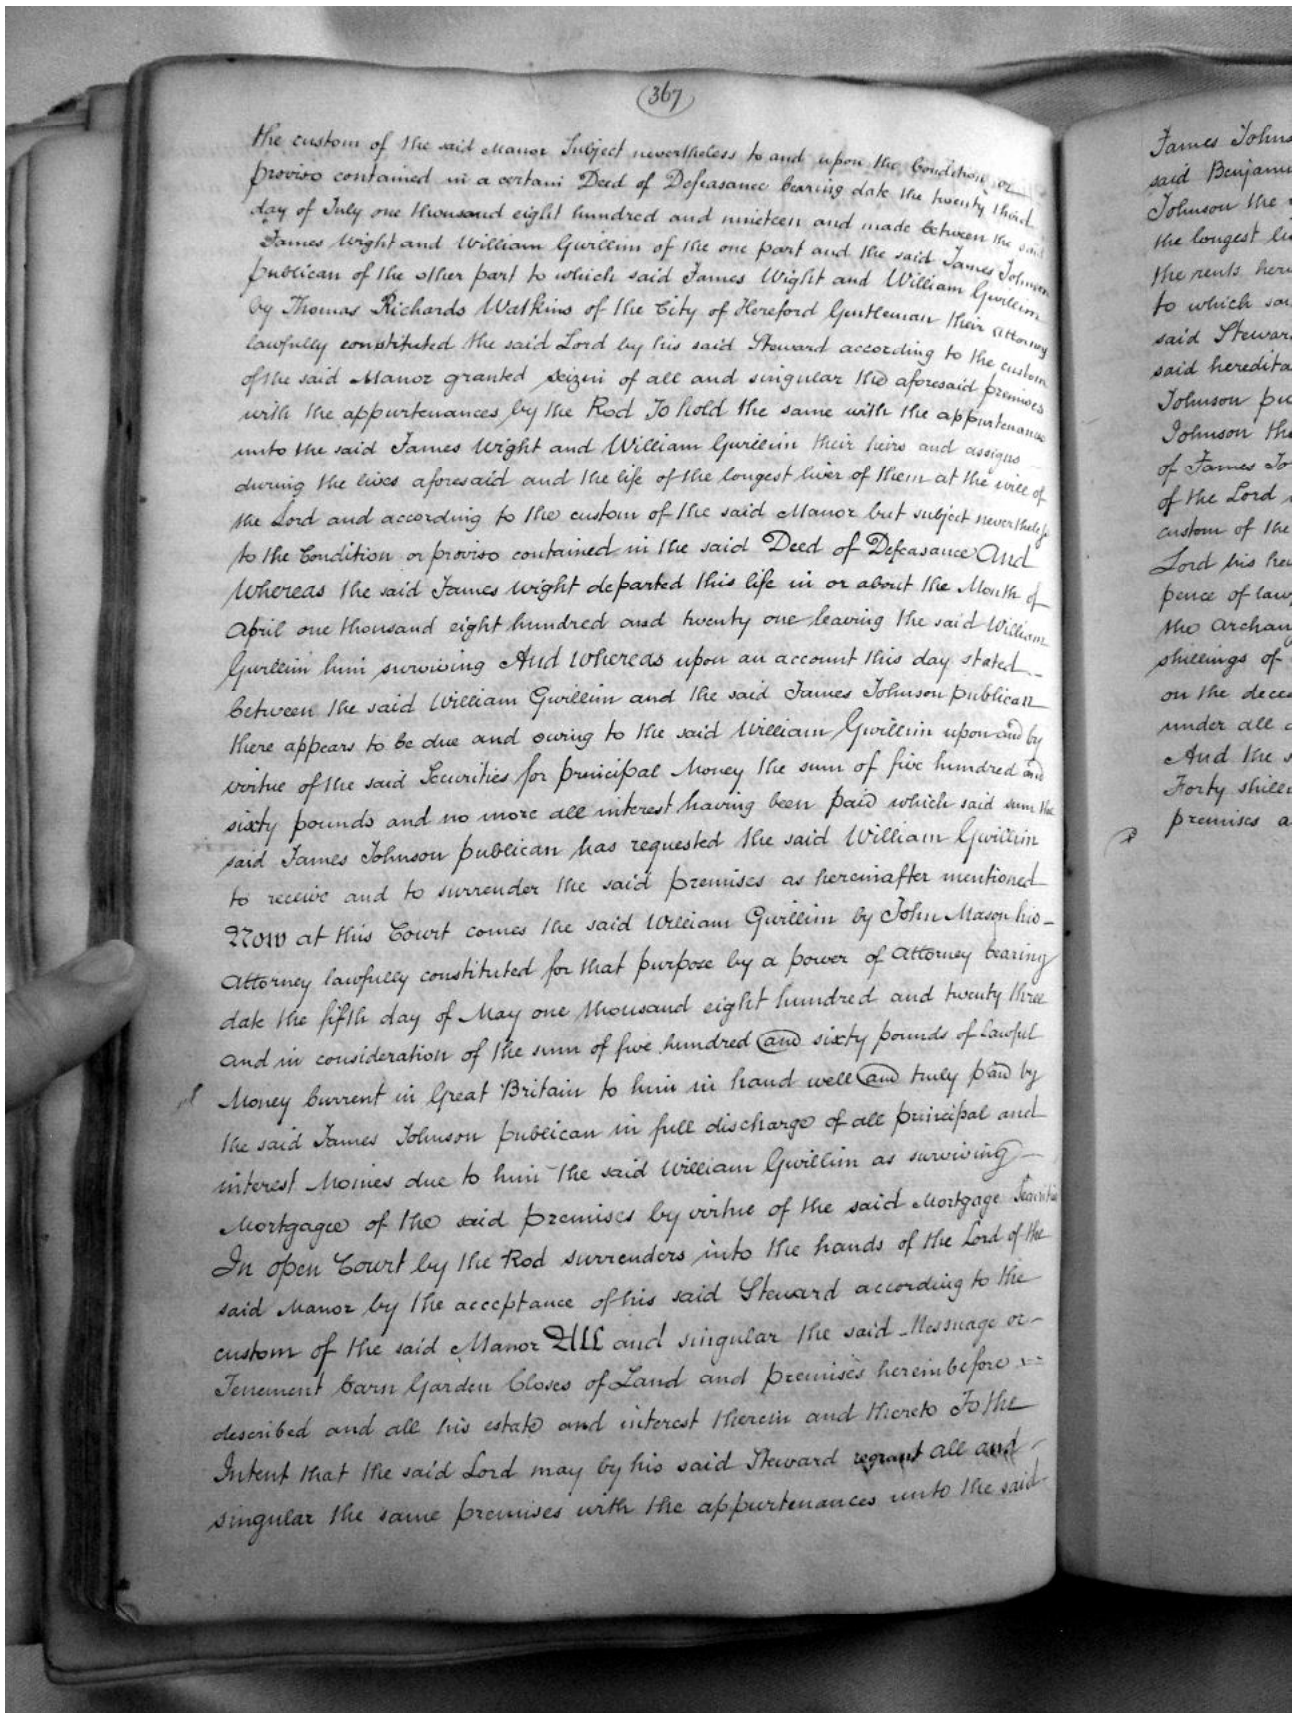 367
the custom of the said Manor Subject nevertheless to and upon the Condition or
proviso contained in a certain Deed of Defeasance bearing date the twenty third
day of July one thousand eight hundred and nineteen and made between the said
James Wight and William Gwillim of the one part and the said James Johnson
publican of the other part to which said James Wight and William Gwillim
by Thomas Richards Watkins of the City of Hereford Gentleman their attorney
lawfully constituted the said Lord by his said Steward according to the custom
of the said Manor granted seizin of all and singular the aforesaid premises
with the appurtenances by the Rod To hold the same with the appurtenances
unto the said James Wight and William Gwillim their heirs and assigns
during the lives aforesaid and the life of the longest liver of them at the will of
the Lord and according to the custom of the said Manor but subject nevertheless
to the Condition or proviso contained in the said Deed of Defeasance And
Whereas the said James Wight departed this life in or about the Month of
April one thousand eight hundred and twenty one leaving the said William
Gwillim him surviving And Whereas upon an account this day stated
between the said William Gwillim and the said James Johnson publican
there appears to be due and owing to the said William Gwillim upon and by
virtue of the said Securities for principal Money the sum of five hundred and
sixty pounds and no more all interest having been paid which said sum the
said James Johnson publican has requested the said William Gwillim
to receive and to surrender the said premises as hereinafter mentioned
Now at this Court comes the said William Gwillim by John Mason his
Attorney lawfully constituted for that purpose by a power of Attorney bearing
date the fifth day of May one thousand eight hundred and twenty three
and in consideration of the sum of five hundred and sixty pounds of lawful
Money Current in Great Britain to him in hand well and truly paid by
the said James Johnson publican in full discharge of all principal and
interest Monies due to him the said William Gwillim as surviving
Mortgagee of the said premises by virtue of the said Mortgage Securities
In open Court by the Rod surrenders into the hands of the Lord of the
said Manor by the acceptance of his said Steward according to the
custom of the said Manor All and singular the said Messuage or
Tenement barn Garden Closes of Land and premises hereinbefore
described and all his estate and interest therein and thereto To the
Intent that the said Lord may by his said Steward regrant all and
singular the same premises with the appurtenances unto the said
James Johns
said Benjami
Johnson the
the longest li
the rents her
to which sai
said Stewar
said heredita
Johnson pu
Johnson the
of James Jo
of the Lord
custom of the
Lord his hei
pence of law
the Archan
shillings of
on the dece
under all
And the s
Forty shill
premises a